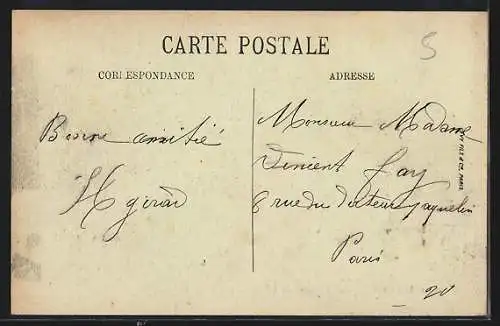 CARTE POSTALE
5
CORRESPONDANCE
ADRESSE
Bonne amitié
H Girard
Monsieur Madame
Vincent Fay
8 rue du docteur Jaquelin
Paris
20